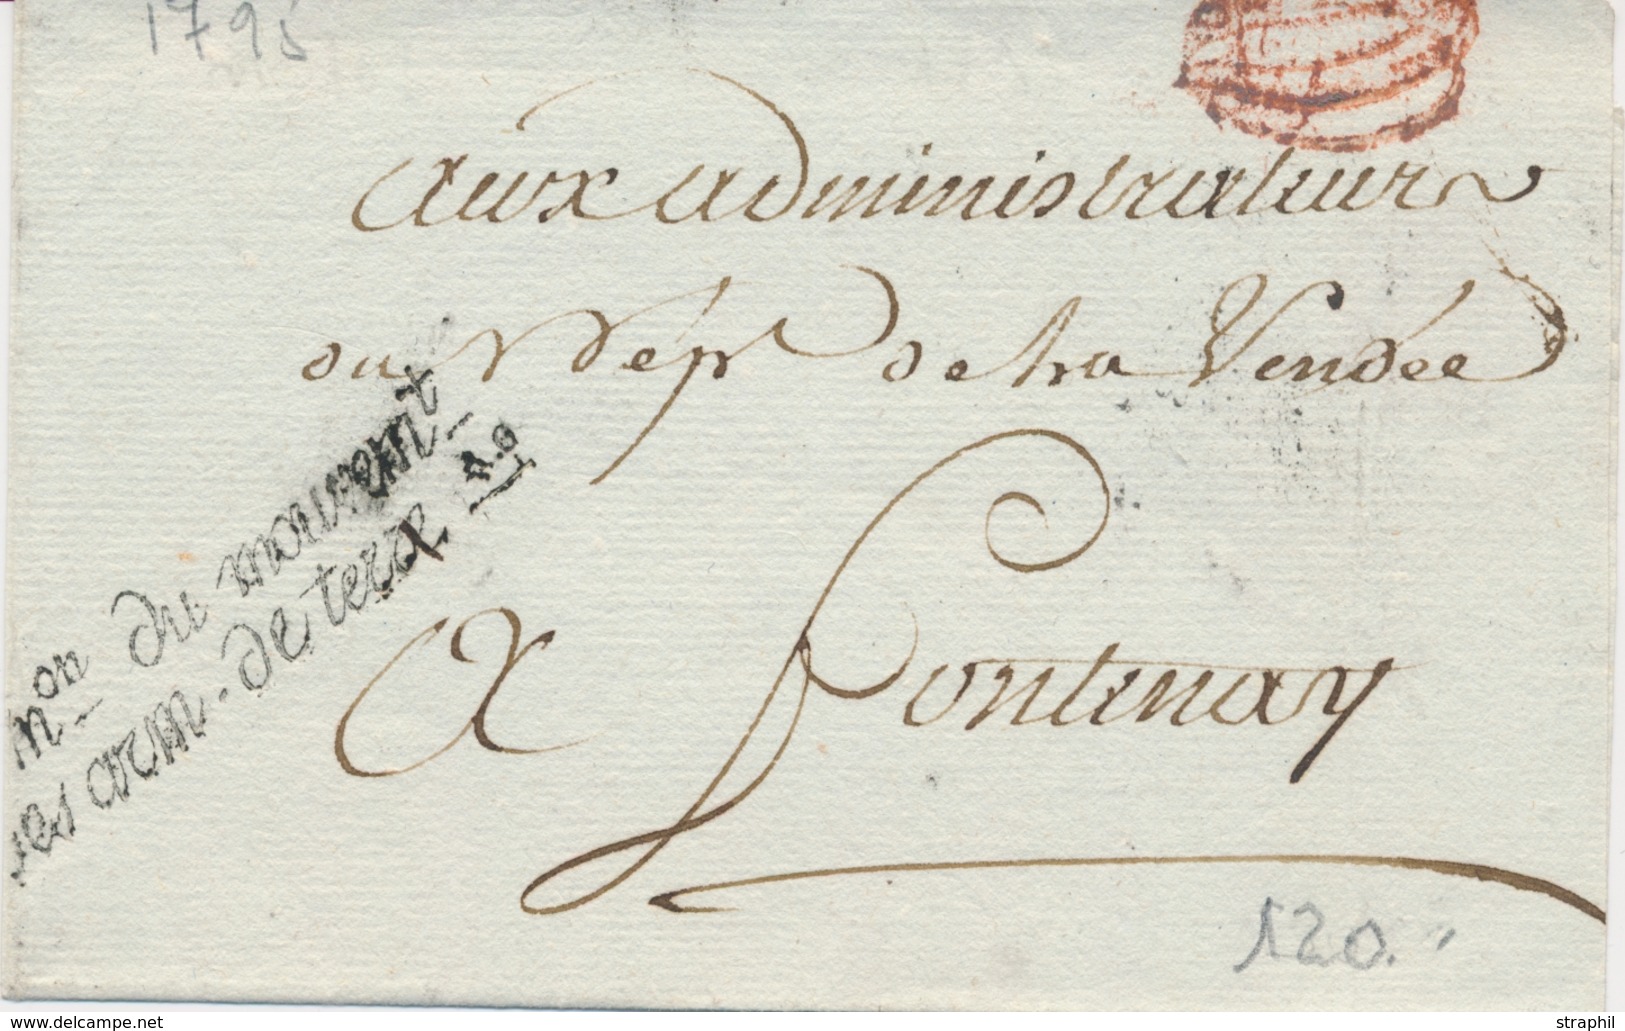 1795
aux administrateurs
du Dépt de la Vendée
mon du mouvemt
des arm. de terre N.o
A Fontenay
120.
www.delcampe.net
straphil